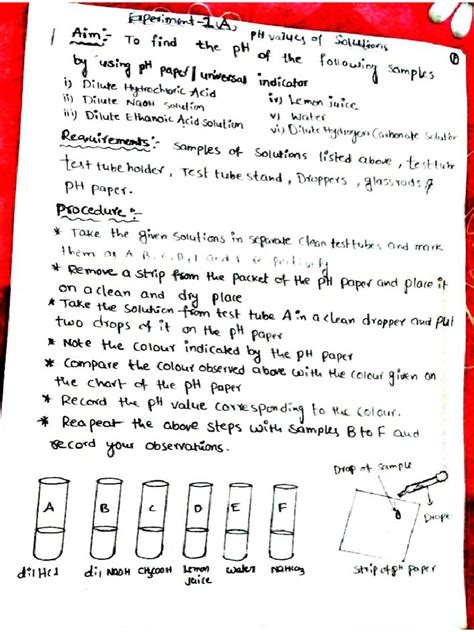 Experiment-1(A) pH values of Solutions
Aim:- To find the pH of the following samples
by using pH paper/universal indicator
i) Dilute Hydrochloric Acid
ii) Dilute NaOH Solution
iii) Dilute Ethanoic Acid solution
iv) Lemon juice
v) Water
vi) Dilute Hydrogen Carbonate Solution
Requirements:- Samples of Solutions listed above, test tube
test tube holder, Test tube stand, Droppers, glass rods &
pH paper.
Procedure:-
* Take the given Solutions in separate clean test tubes, and mark
them as A B, C, D,
* Remove a strip from the packet of the pH paper and place it
on a clean and dry place
* Take the Solution from test tube A in a clean dropper and put
two drops of it on the pH paper
* Note the colour indicated by the pH paper
* Compare the colour observed above with the colour given on
the chart of the pH paper
* Record the pH value corresponding to the colour.
* Reapeat the above steps with samples B to F and
record your observations.
Drop of sample
A B C D E F
Drope
dil Hcl dil NaOH CH3COOH Lemon juice Water NaHCO3
Strip of pH paper